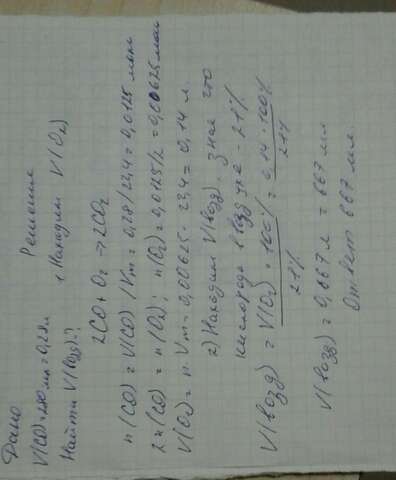 Дано
Решение
V(CO)=280 мл=0,28л
1 Находим V(O2)
Найти V(возд)?
2CO + O2 → 2CO2
n(CO) = V(CO) / Vm = 0,28/22,4 = 0,0125 моль
2n(CO) = n(O2); n(O2) = 0,0125/2 = 0,00625 моль
V(O2) = n · Vm = 0,00625 · 22,4 = 0,14 л.
2) Находим V(возд). зная что
кислорода в воздухе - 21%
V(возд) = V(O2) · 100% / 21% = 0,14 · 100% / 21%
V(возд) = 0,667 л = 667 мл
Ответ 667 мл.